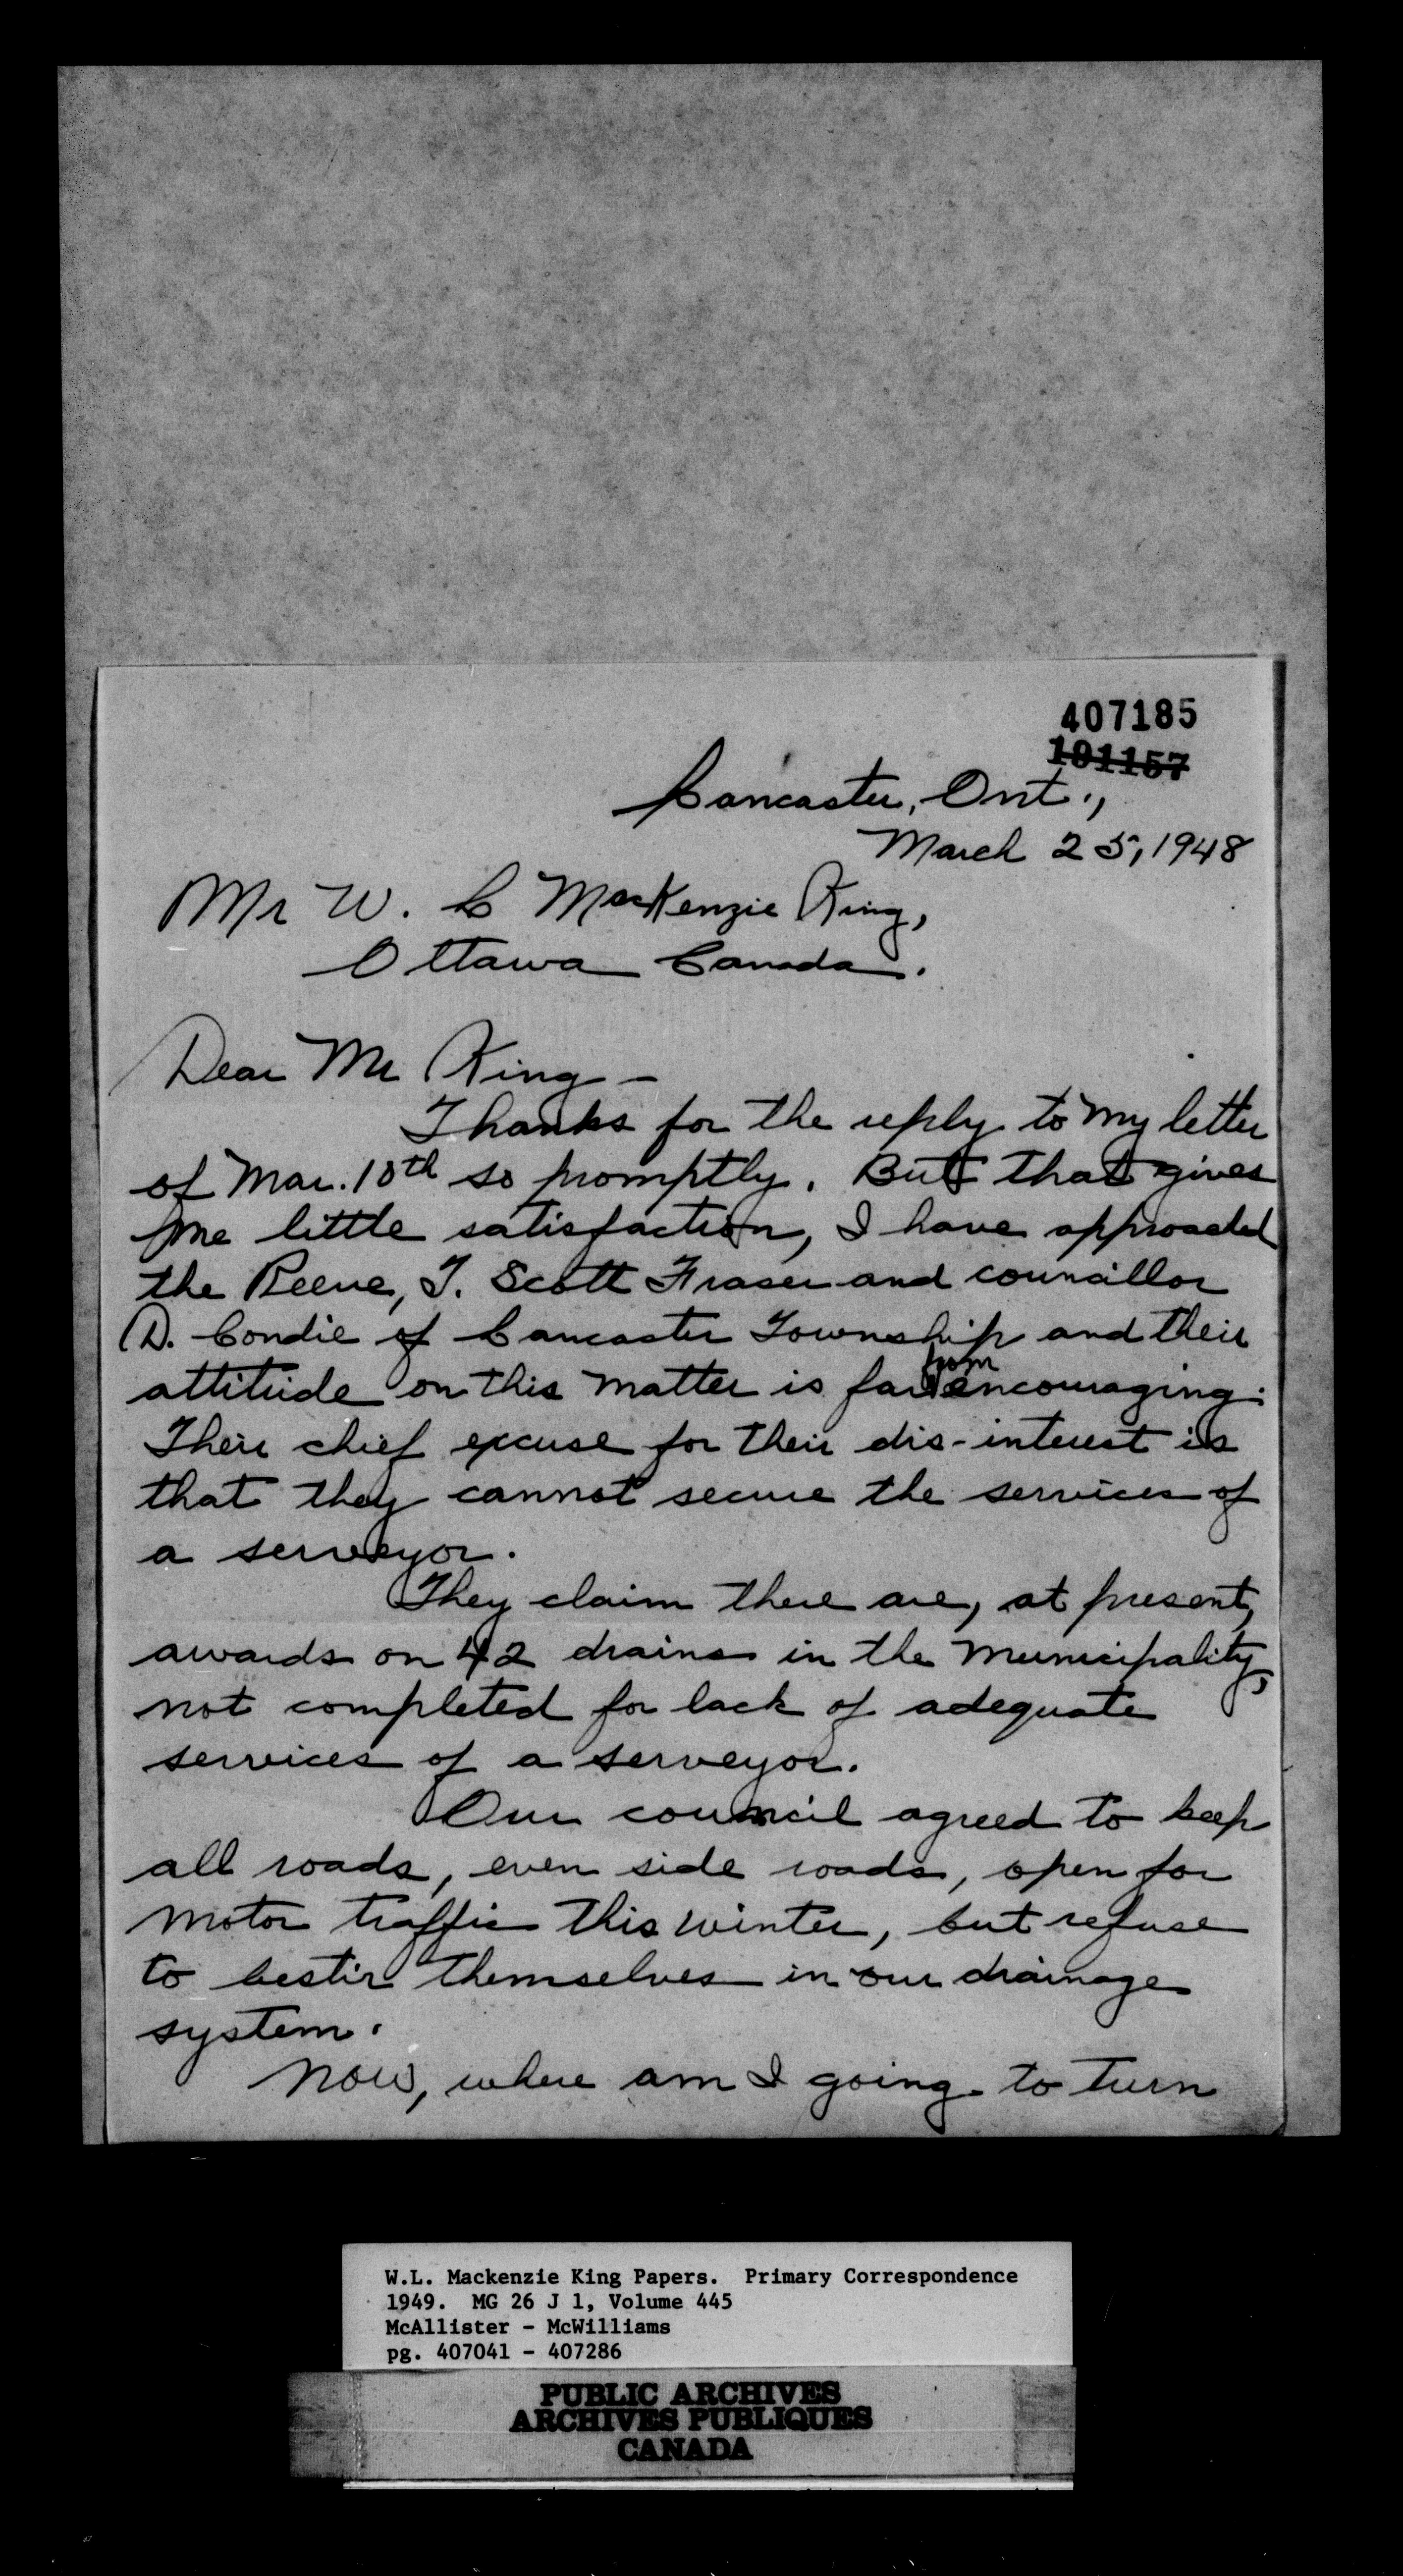 407185
101157
Lancaster, Ont.,
March 25, 1948
Mr W. L MacKenzie King,
Ottawa Canada.
Dear Mr King –
Thanks for the reply to my letter
of Mar. 10th so promptly. But that gives
me little satisfaction, I have approached
the Reeve, J. Scott Fraser and councillor
D. Condie of Lancaster Township and their
attitude on this matter is far from encouraging.
Their chief excuse for their dis-interest is
that they cannot secure the services of
a serveyor.
They claim there are, at present,
awards on 42 drains in the Municipality,
not completed for lack of adequate
services of a serveyor.
Our council agreed to keep
all roads, even side roads, open for
motor traffic this winter, but refuse
to bestir themselves in our drainage
system.
Now, where am I going to turn
W.L. Mackenzie King Papers. Primary Correspondence
1949. MG 26 J 1, Volume 445
McAllister - McWilliams
pg. 407041 - 407286
PUBLIC ARCHIVES
ARCHIVES PUBLIQUES
CANADA